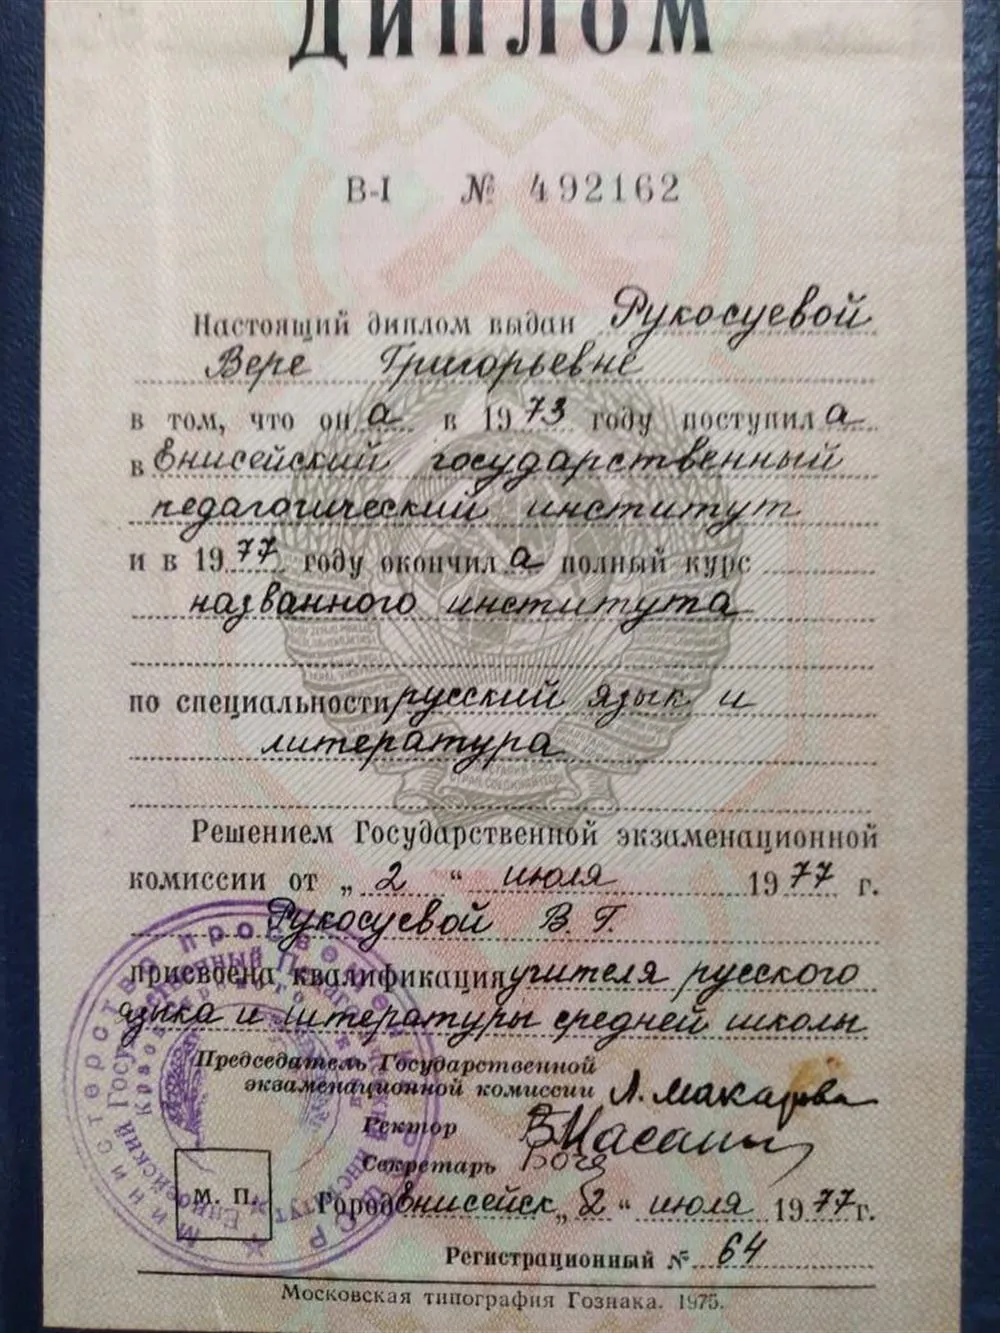 ДИПЛОМ
В-I № 492162
Настоящий диплом выдан Рукосуевой
Вере Григорьевне
в том, что он а в 1973 году поступил а
в Енисейский государственный
педагогический институт
и в 1977 году окончил а полный курс
названного института
по специальности русский язык и
литература
Решением Государственной экзаменационной
комиссии от „ 2 “ июля 1977 г.
Рукосуевой В. Г.
присвоена квалификация учителя русского
языка и литературы средней школы
Председатель Государственной
экзаменационной комиссии Л. Макарова
Ректор
Секретарь
М. П.
Город Енисейск „ 2 “ июля 1977 г.
Регистрационный № 64
Московская типография Гознака. 1975.